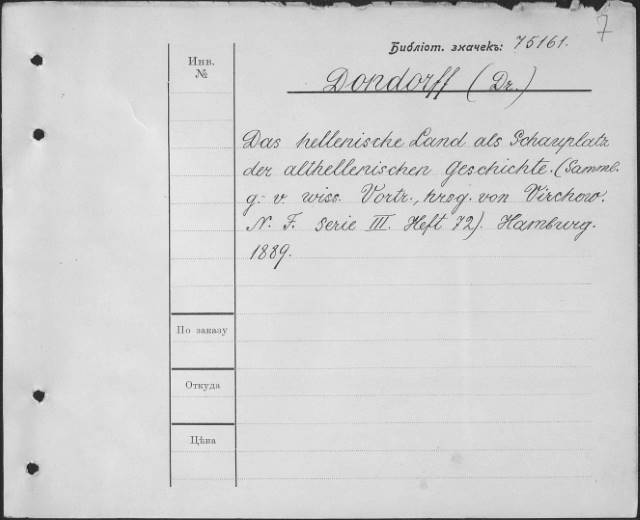 7
Библіот. значекъ: 75161.
Инв.
№
Dondorff (Dr.)
Das hellenische Land als Schauplatz
der althellenischen Geschichte. (Samml.
g. v. wiss. Vortr., hrsg. von Virchow.
N. F. Serie III. Heft 72). Hamburg.
1889.
По заказу
Откуда
Цѣна